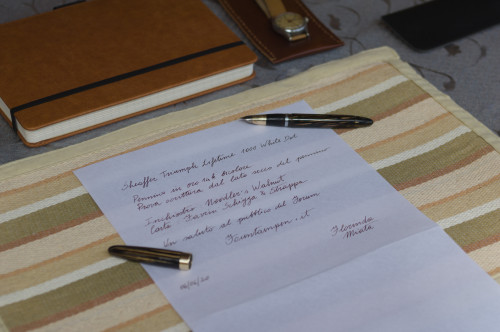 Sheaffer Triumph Lifetime 1000 White Dot
Pennino in oro 14k bicolore
Prova scrittura dal lato secco del pennino
Inchiostro Noodler's Walnut
Carta Favini Schizza & Strappa
Un saluto al pubblico del Forum
Fountainpen.it
Florindo